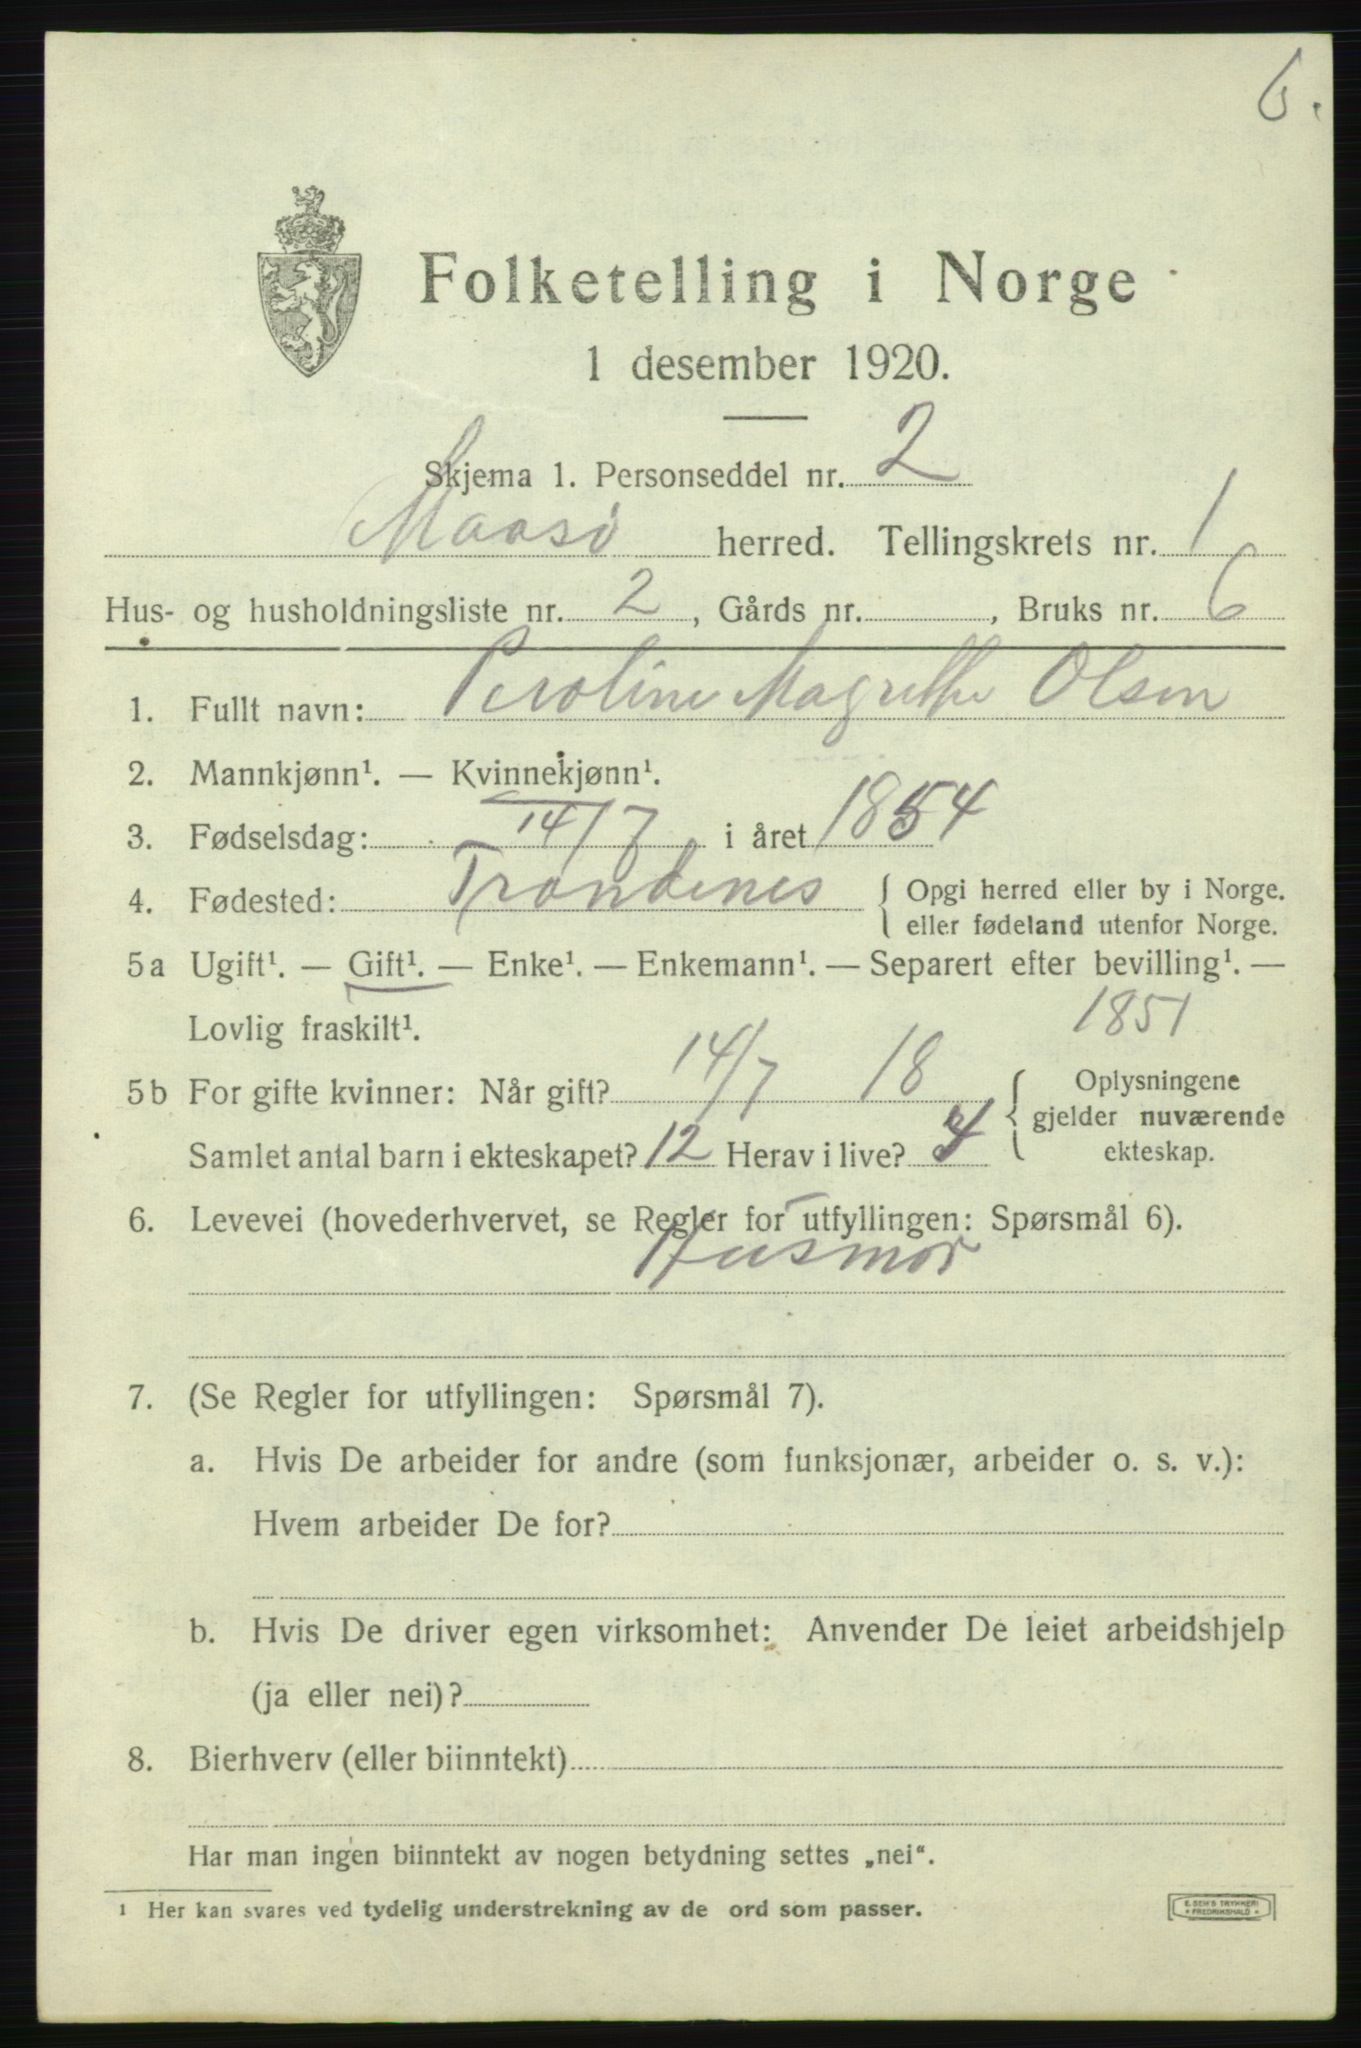 6.
Folketelling i Norge
1 desember 1920.
Skjema 1. Personseddel nr. 2
Maasö herred. Tellingskrets nr. 1
Hus- og husholdningsliste nr. 2, Gårds nr. , Bruks nr. 6
1. Fullt navn: Peroline Magrethe Olsen
2. Mannkjønn¹. — Kvinnekjønn¹.
3. Fødselsdag: 14/7 i året 1854
4. Fødested: Trondenes { Opgi herred eller by i Norge.
eller fødeland utenfor Norge.
5a Ugift¹. — Gift¹. — Enke¹. — Enkemann¹. — Separert efter bevilling¹. —
Lovlig fraskilt¹. 1851
5b For gifte kvinner: Når gift? 14/7 18 { Oplysningene
gjelder nuværende
ekteskap.
Samlet antal barn i ekteskapet? 12 Herav i live?
6. Levevei (hovederhvervet, se Regler for utfyllingen: Spørsmål 6).
Husmor
7. (Se Regler for utfyllingen: Spørsmål 7).
a. Hvis De arbeider for andre (som funksjonær, arbeider o. s. v.):
Hvem arbeider De for?
b. Hvis De driver egen virksomhet: Anvender De leiet arbeidshjelp
(ja eller nei)?
8. Bierhverv (eller biinntekt)
Har man ingen biinntekt av nogen betydning settes „nei“.
¹ Her kan svares ved tydelig understrekning av de ord som passer.
E. SEM'S TRYKKERI
* FREDRIKSHALD *